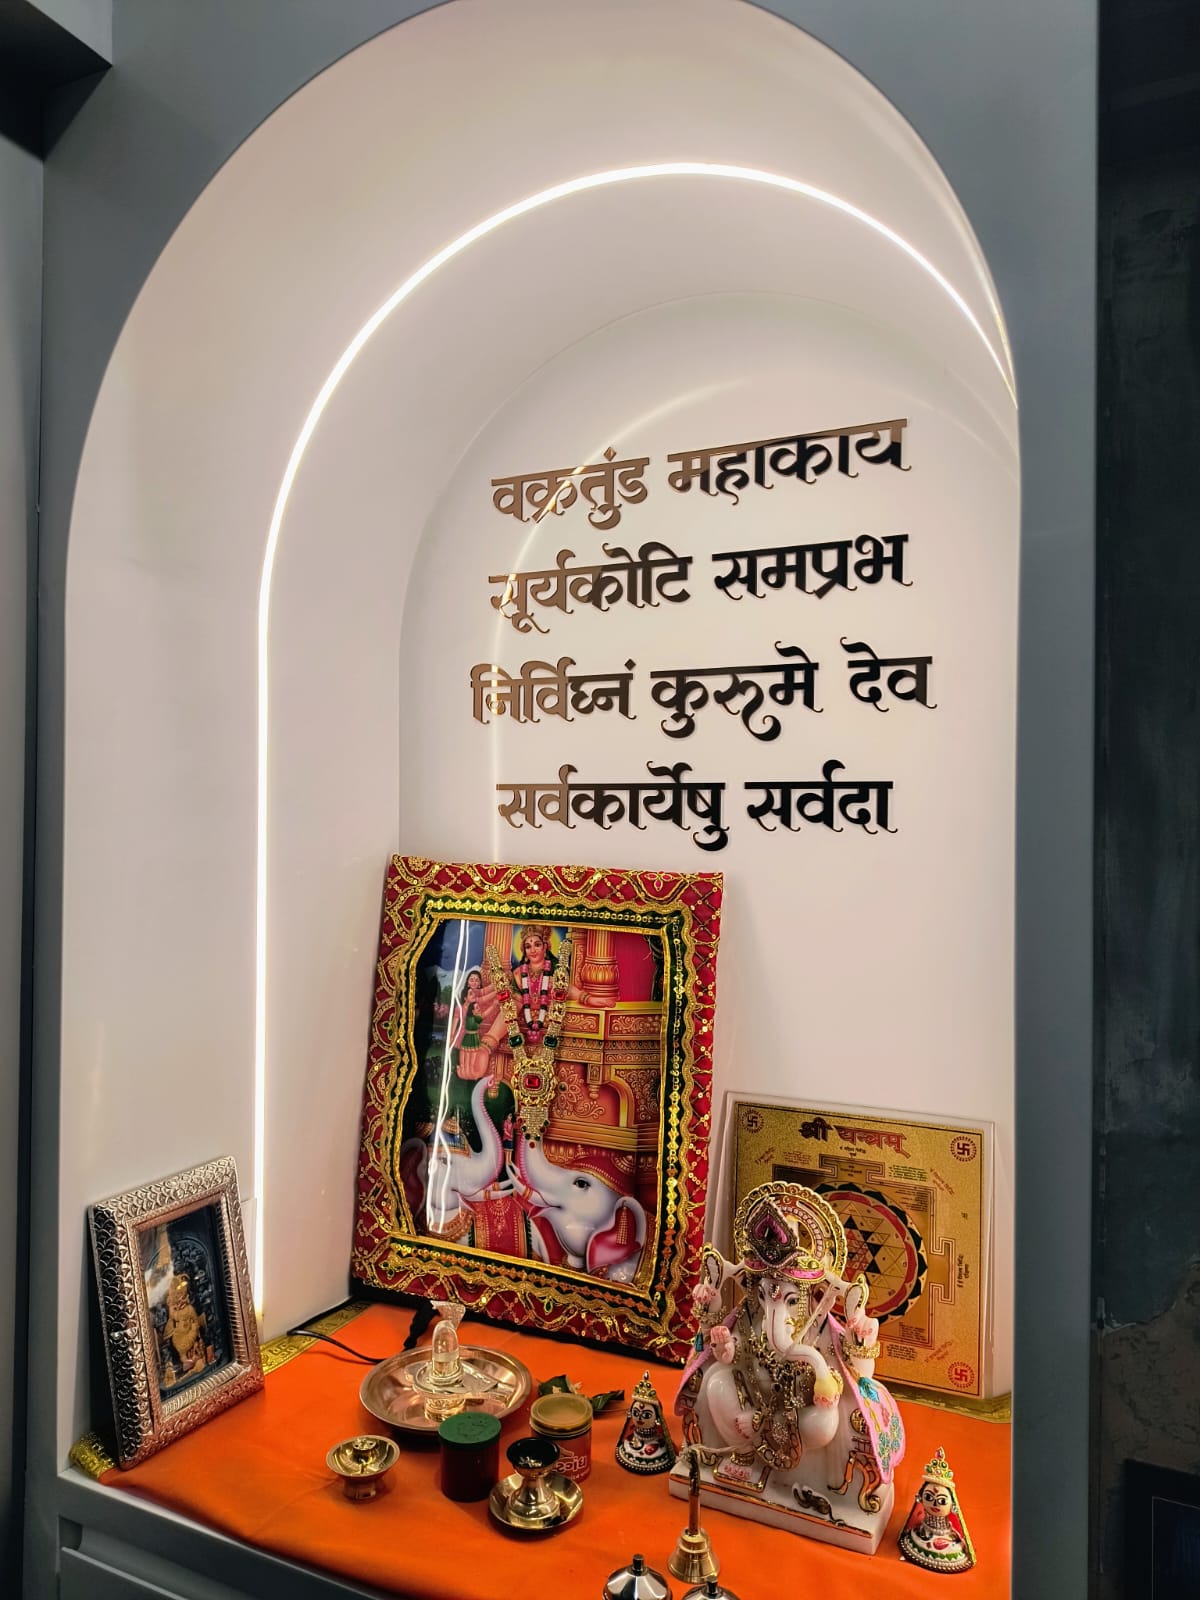 वक्रतुंड महाकाय
सूर्यकोटि समप्रभ
निर्विघ्नं कुरूमे देव
सर्वकार्येषु सर्वदा
श्री यन्त्रम्